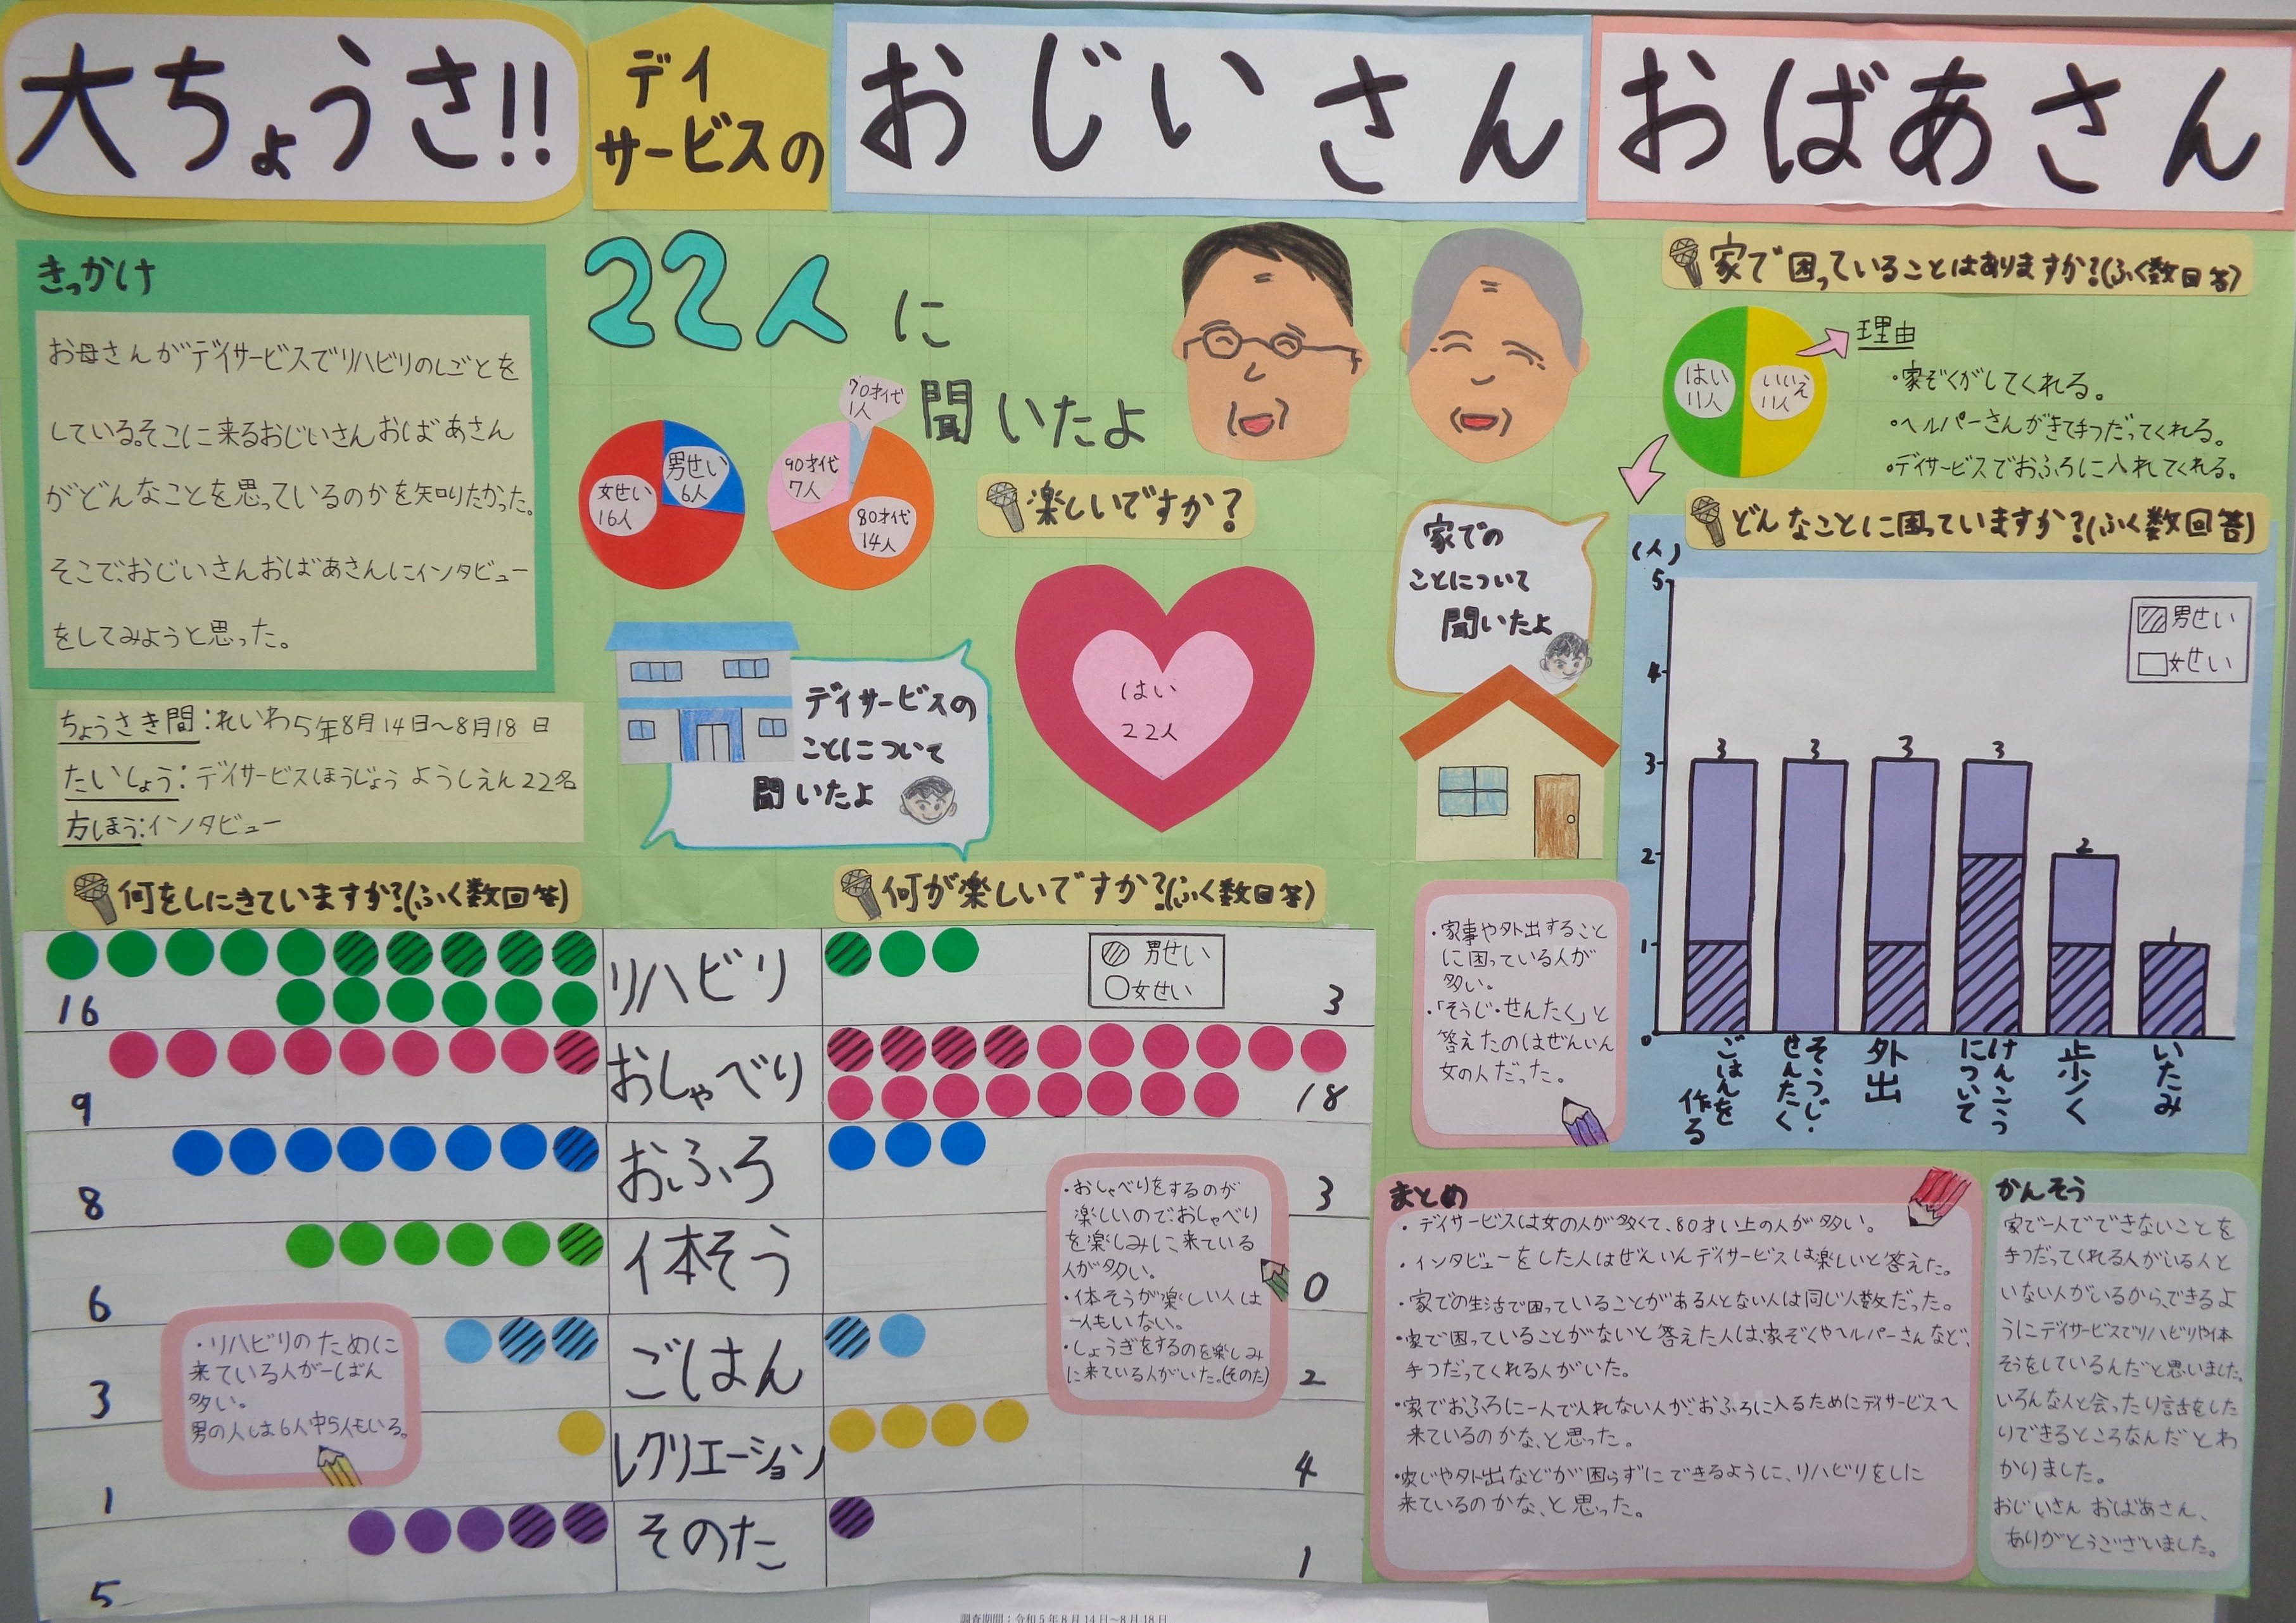 大ちょうさ!!
デイ
サービスの
おじいさん
おばあさん
きっかけ
お母さんがデイサービスでリハビリのしごとを
している。そこに来るおじいさんおばあさん
がどんなことを思っているのかを知りたかった。
そこで、おじいさんおばあさんにインタビュー
をしてみようと思った。
ちょうさき間:れいわ5年8月14日〜8月18日
たいしょう:デイサービスほうじょうようしえん22名
方しほう:インタビュー
22人に
聞いたよ
女せい
16人
男せい
6人
70才代
1人
90才代
7人
80才代
14人
デイサービスの
ことについて
聞いたよ
楽しいですか?
はい
22人
何をしにきていますか?(ふく数回答)
何が楽しいですか?(ふく数回答)
男せい
女せい
16 リハビリ 3
9 おしゃべり 18
8 おふろ 3
6 体そう 0
3 ごはん 2
1 レクリエーション 4
5 そのた 1
・リハビリのために
来ている人が一ばん
多い。
男の人は6人中5人もいる。
・おしゃべりをするのが
楽しいので、おしゃべり
を楽しみに、来ている
人が多い。
・体そうが楽しい人は
一人もいない。
・しょうぎをするのを楽しみ
に来ている人がいた。(そのた)
家での
ことについて
聞いたよ
家で困っていることはありますか?(ふく数回答)
はい
11人
いいえ
11人
理由
・家ぞくがしてくれる。
・ヘルパーさんがきて手つだってくれる。
・デイサービスでおふろに入れてくれる。
どんなことに困っていますか?(ふく数回答)
(人)
5
4
3
2
1
0
男せい
女せい
3 3 3 3 2 1
ごはんを作る
そうじ・せんたく
外出
けんこうについて
歩く
いたみ
・家事や外出すること
に困っている人が
多い。
・「そうじ・せんたく」と
答えたのはぜんいん
女の人だった。
まとめ
・デイサービスは女の人が多くて、80才い上の人が多い。
・インタビューをした人はぜんいんデイサービスは楽しいと答えた。
・家での生活で困っていることがある人とない人は同じ人数だった。
・家で困っていることがないと答えた人は、家ぞくやヘルパーさんなど、
手つだってくれる人がいた。
・家でおふろに一人で入れない人が、おふろに入るためにデイサービスへ
来ているのかな、と思った。
・家じや外出などが困らずにできるように、リハビリをしに
来ているのかな、と思った。
かんそう
家で一人でできないことを
手つだってくれる人がいる人と
いない人がいるから、できるよ
うにデイサービスでリハビリや体
そうをしているんだと思いました。
いろんな人と会ったり話をした
りできるところなんだとわ
かりました。
おじいさんおばあさん、
ありがとうございました。
調査期間:令和5年8月14日〜8月18日